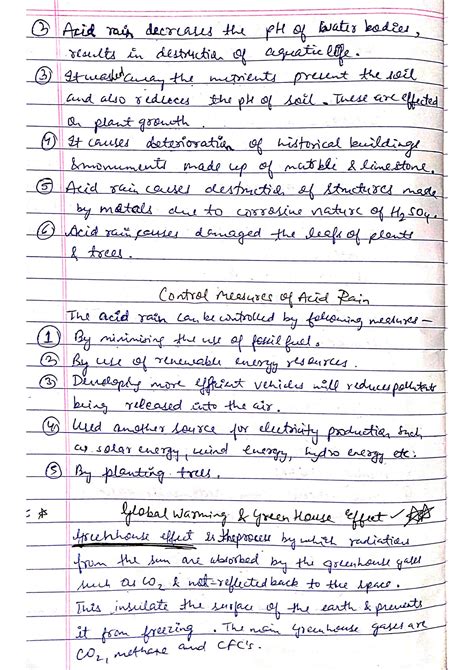 ② Acid rain decreases the pH of water bodies,
results in destruction of aquatic life.
③ It washed away the nutrients present the soil
and also reduces the pH of soil. These are effected
on plant growth.
④ It causes deterioration of historical buildings
& monuments made up of marble & limestone.
⑤ Acid rain causes destruction of structures made
by metals due to corrosive nature of H₂SO₄.
⑥ Acid rain causes damaged the leafs of plants
& trees.
Control Measures of Acid Rain
The acid rain can be controlled by following measures –
① By minimising the use of fossil fuel.
② By use of renewable energy resources.
③ Developing more efficient vehicles will reduces pollutants
being released into the air.
④ Used another source for electricity production such
as solar energy, wind energy, hydro energy etc.
⑤ By planting trees.
Global Warming & Green House Effect ✓ ☆☆
Greenhouse effect is the process by which radiations
from the sun are absorbed by the greenhouse gases
such as CO₂ & not reflected back to the space.
This insulate the surface of the earth & prevents
it from freezing. The main greenhouse gases are
CO₂, methane and CFC's.